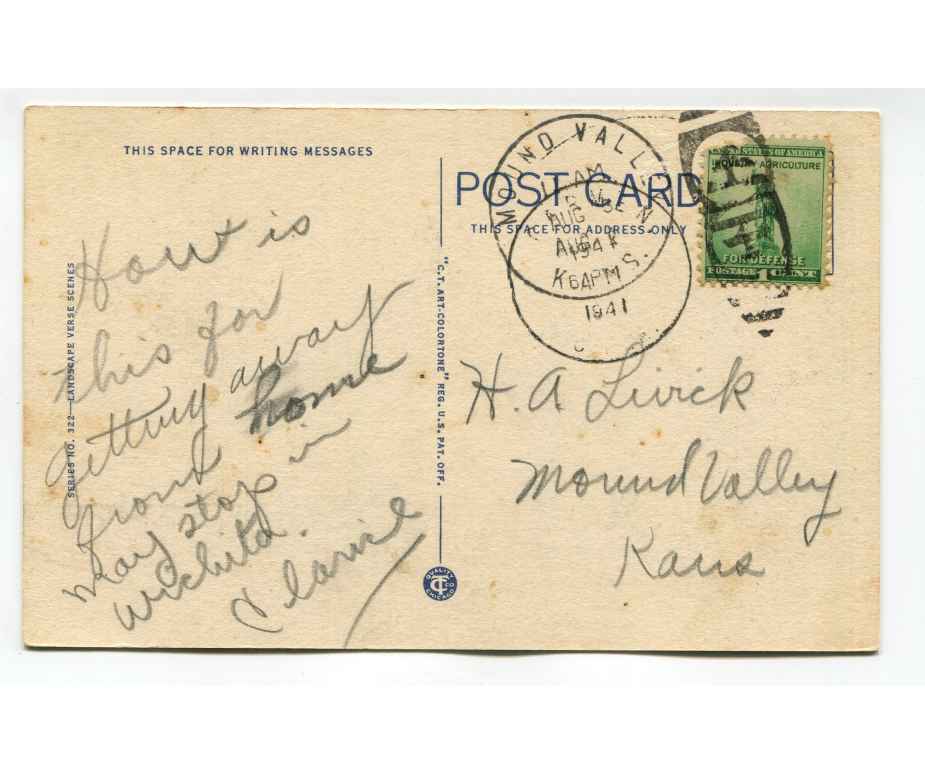 THIS SPACE FOR WRITING MESSAGES
How is
this for
getting away
from home
may stop in
Wichita.
Clarice
SERIES NO. 322—LANDSCAPE VERSE SCENES
"C.T. ART-COLORTONE" REG. U.S. PAT. OFF.
QUALITY CO CHICAGO
CT
POST CARD
THIS SPACE FOR ADDRESS ONLY
MOUND VALLEY
AM
AUG
1941
AUG
6 PM
1941
UNITED STATES OF AMERICA
INDUSTRY AGRICULTURE
FOR DEFENSE
POSTAGE 1 CENT
H. A. Livick
Mound Valley
Kans